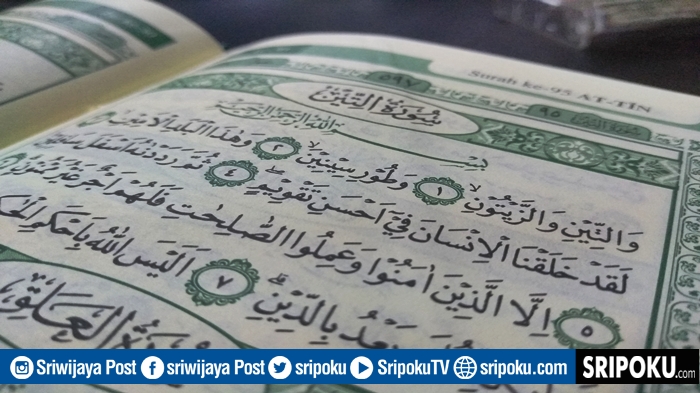 Surah ke-95 AT-TĪN
٥٩٧
٩٥
سُورَةُ التِّيْنِ
بِسْمِ اللّٰهِ الرَّحْمٰنِ الرَّحِيْمِ
وَالتِّيْنِ وَالزَّيْتُوْنِۙ ١ وَطُوْرِ سِيْنِيْنَۙ ٢ وَهٰذَا الْبَلَدِ الْاَمِيْنِۙ
لَقَدْ خَلَقْنَا الْاِنْسَانَ فِيْٓ اَحْسَنِ تَقْوِيْمٍۖ ٤ ثُمَّ رَدَدْنٰهُ اَسْفَلَ
٥ اِلَّا الَّذِيْنَ اٰمَنُوْا وَعَمِلُوا الصّٰلِحٰتِ فَلَهُمْ اَجْرٌ غَيْرُ مَمْنُوْنٍ
بَعْدُ بِالدِّيْنِۗ ٧ اَلَيْسَ اللّٰهُ بِاَحْكَمِ
سُورَةُ الْعَلَقِ
Sriwijaya Post sriwijaya Post sripoku SripokuTV sripoku.com
SRIPOKU.com